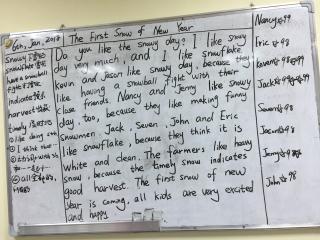 6th, Jan, 2018
The First Snow of New Year
Do you like the snowy day? I like snowy
day very much, and I like snowflake
Kevin and Jason like snowy day, because they
having a snowball fight with their
close friends. Nancy and Jenny like snowy
day, too, because they like making funny
snowmen. Jack, Seven, John and Eric
like snowflake, because they think it is
White and clean. The farmers like heavy
snow, because the timely snow indicates
good harvest. The first snow of new
year is coming, all kids are very excited
and happy
snowy
snowflake
have a snowball
fight
indicate
harvest
timely
like doing
I think that
all
Nancy 99
Eric 98
Kevin 98
Jack 99
Seven 98
Jason 98
Jenny 98
John 98